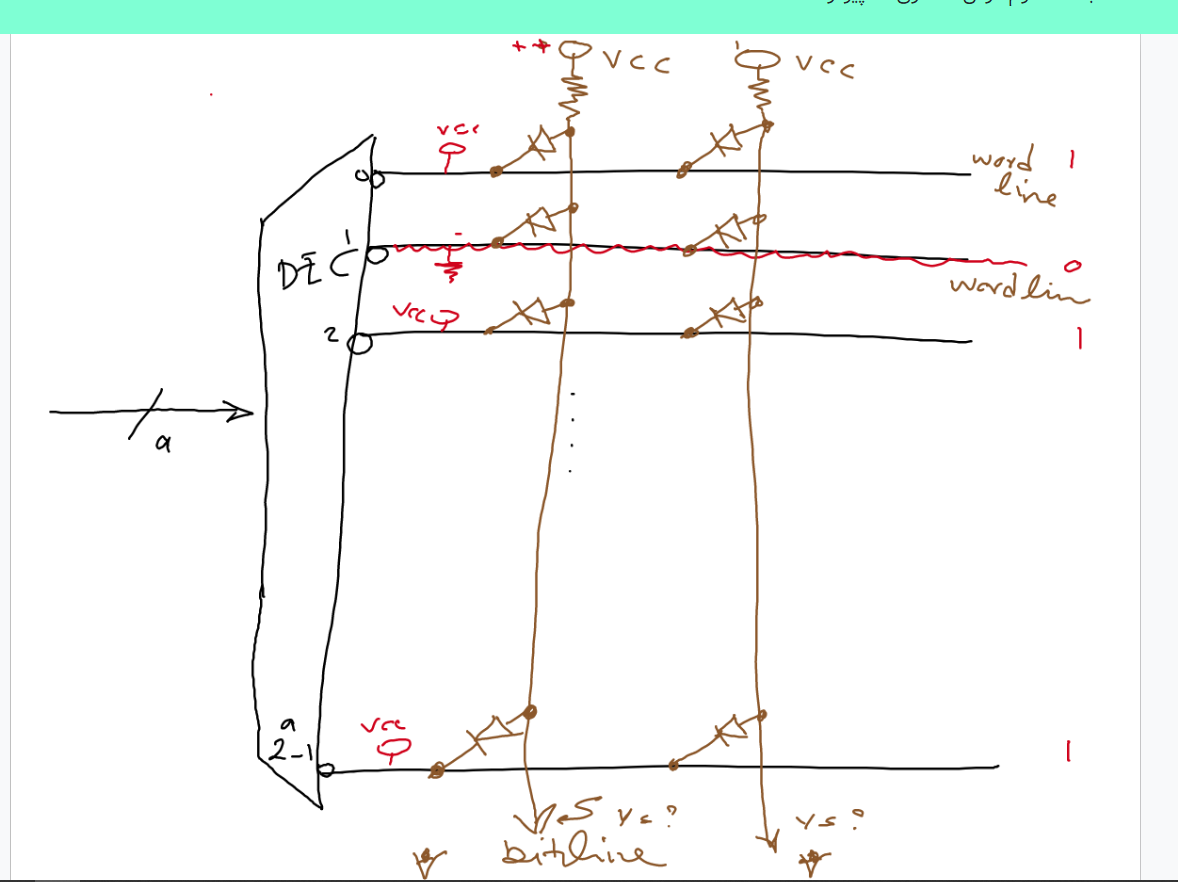 ++ VCC VCC
vcc
word 1
line
0
1
DEC
0
wordlin
vcc
2
1
a
a
2-1
vcc
1
bitline